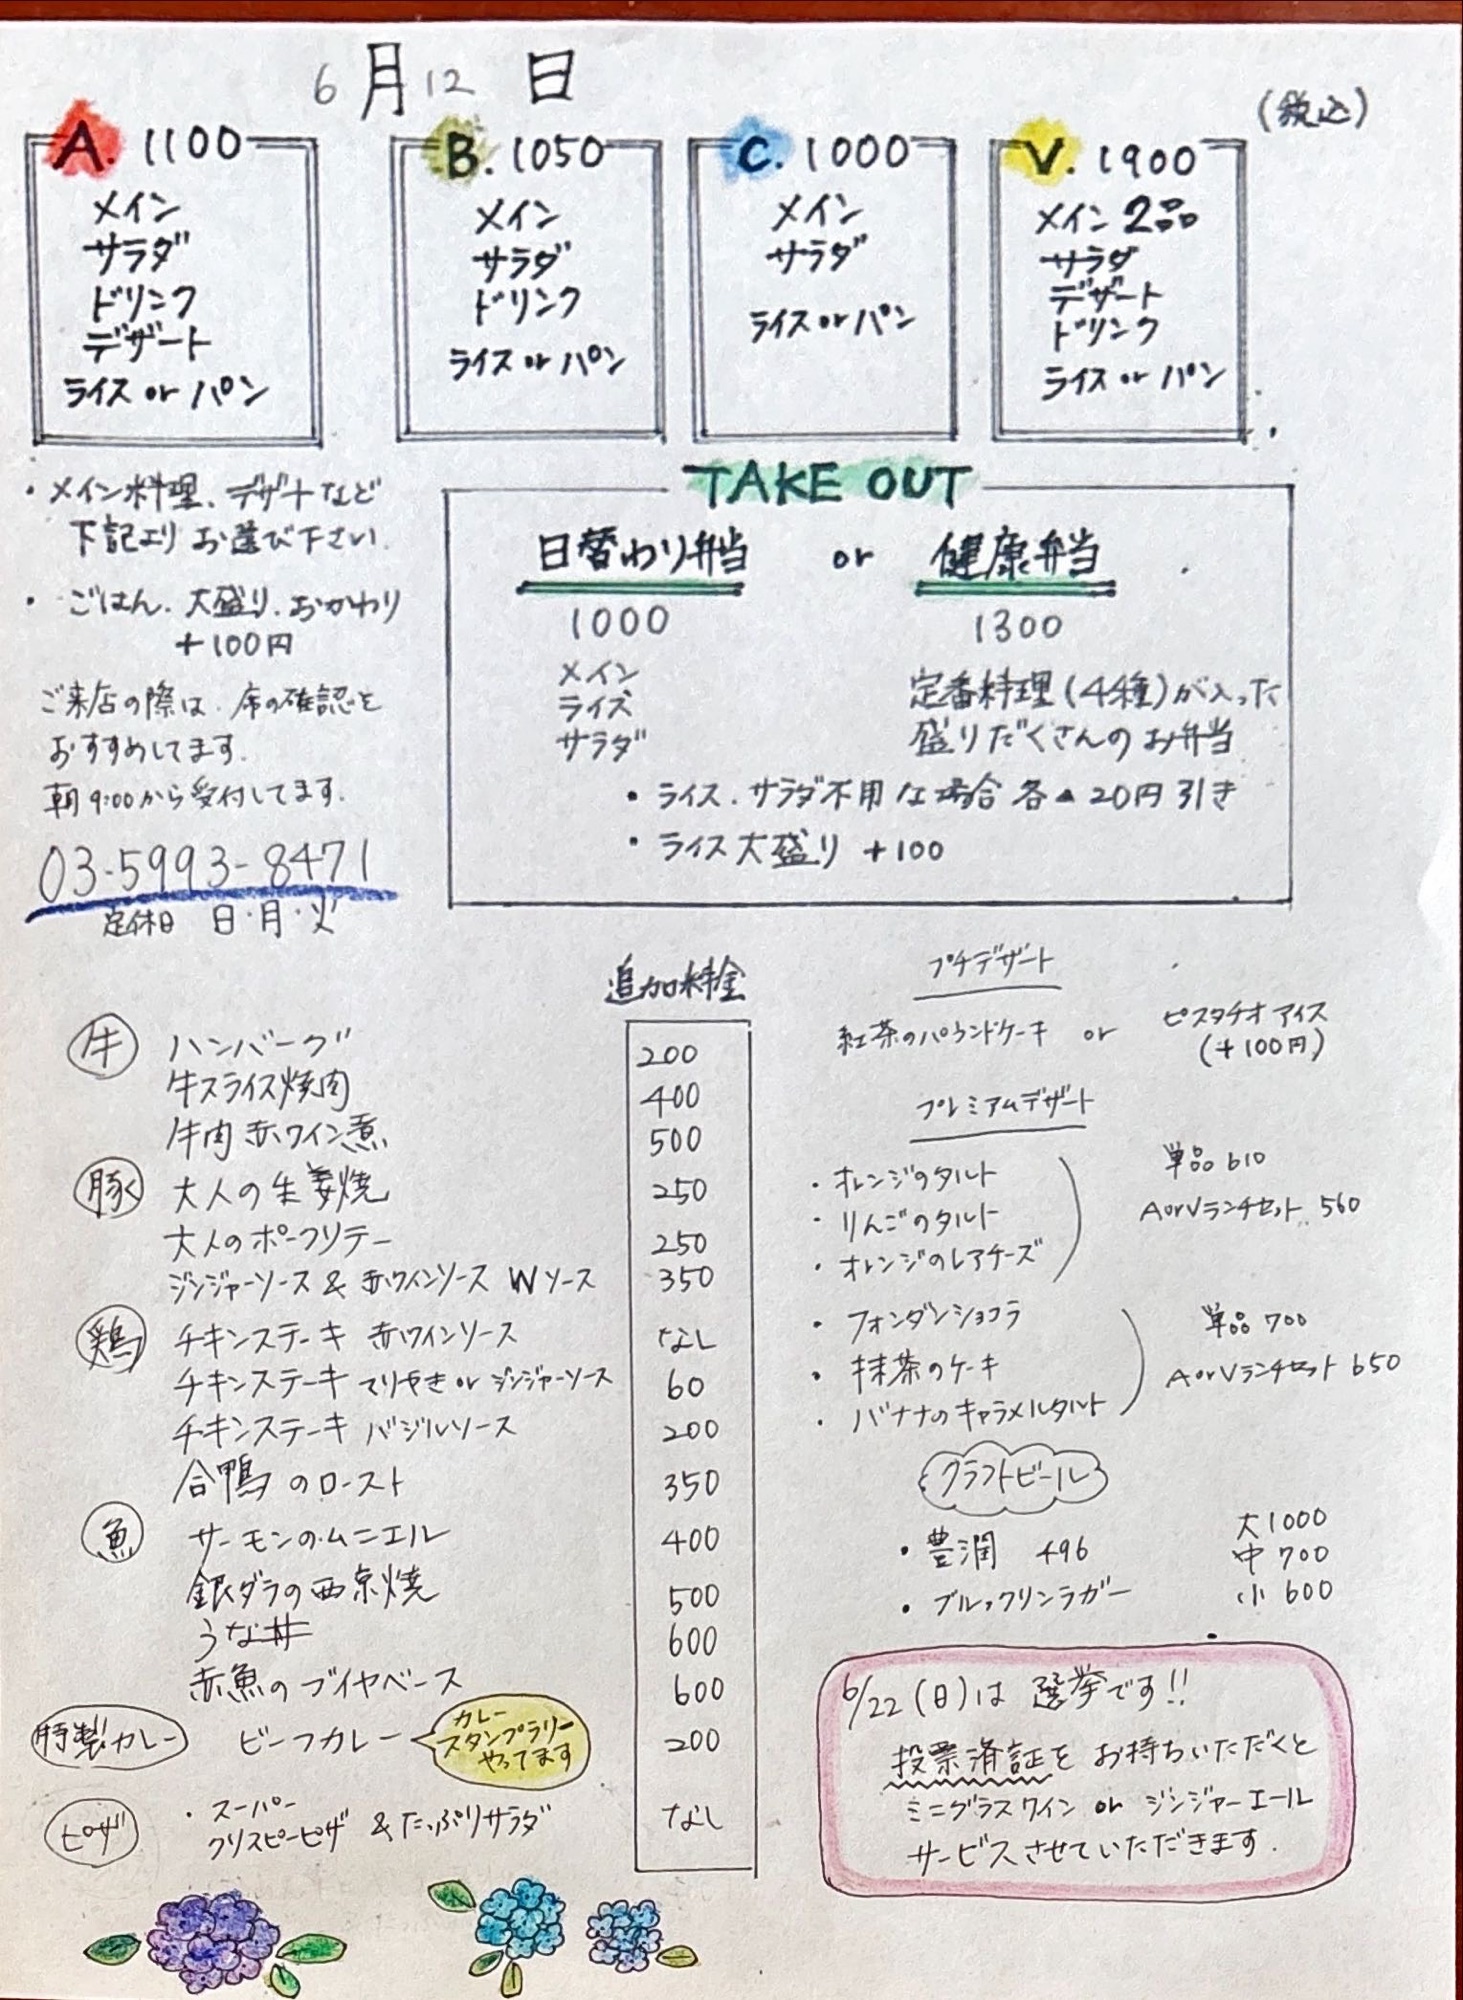 6月12日
(税込)
A. 1100
メイン
サラダ
ドリンク
デザート
ライス or パン
B. 1050
メイン
サラダ
ドリンク
ライス or パン
C. 1000
メイン
サラダ
ライス or パン
V. 1900
メイン 2品
サラダ
デザート
ドリンク
ライス or パン
・メイン料理、デザートなど
下記よりお選び下さい。
・ごはん、大盛り、おかわり
+100円
ご来店の際は、席の確認を
おすすめしてます。
朝9:00から受付してます。
03-5993-8471
定休日 日・月・火
TAKE OUT
日替わり弁当 or 健康弁当
1000
メイン
ライス
サラダ
1300
定番料理(4種)が入った
盛りだくさんのお弁当
・ライス、サラダ不用な場合 各▲20円引き
・ライス大盛り +100
追加料金
牛 ハンバーグ 200
牛スライス焼肉 400
牛肉赤ワイン煮 500
豚 大人の生姜焼 250
大人のポークソテー 250
ジンジャーソース & 赤ワインソース Wソース 350
鶏 チキンステーキ 赤ワインソース なし
チキンステーキ てりやき or ジンジャーソース 60
チキンステーキ バジルソース 200
合鴨のロースト 350
魚 サーモンのムニエル 400
銀ダラの西京焼 500
うな丼 600
赤魚のブイヤベース 600
特製カレー ビーフカレー 200
カレー
スタンプラリー
やってます
ピザ ・スーパー
クリスピーピザ & たっぷりサラダ なし
プチデザート
紅茶のパウンドケーキ or ピスタチオアイス
(+100円)
プレミアムデザート
・オレンジのタルト
・りんごのタルト
・オレンジのレアチーズ
単品 610
AorVランチセット 560
・フォンダンショコラ
・抹茶のケーキ
・バナナのキャラメルタルト
単品 700
AorVランチセット 650
クラフトビール
・豊潤 496
・ブルックリンラガー
大 1000
中 700
小 600
6/22(日)は 選挙です!!
投票済証をお持ちいただくと
ミニグラスワイン or ジンジャーエール
サービスさせていただきます。